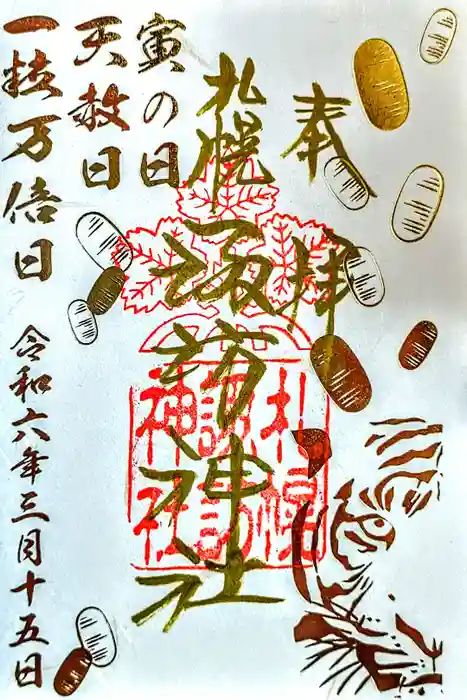 奉拝
札幌
諏訪神社
札幌
諏訪
神社
寅の日
天赦日
一粒万倍日
令和六年三月十五日